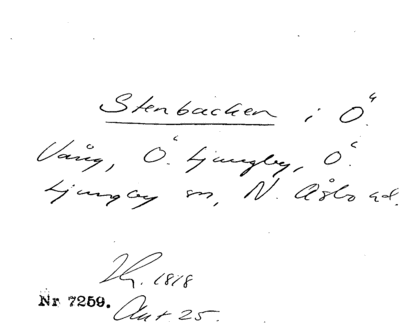 Stenbacken i Ö.
Vång, Ö. Ljungby, Ö.
Ljungby sn, N. Åsbo hd.
1818
Nr 7259. Akt 25.